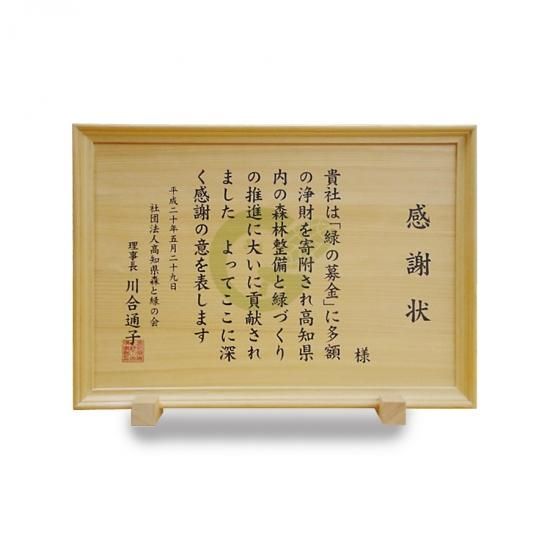 感謝状
様
貴社は「緑の募金」に多額
の浄財を寄附され高知県
内の森林整備と緑づくり
の推進に大いに貢献され
ました よってここに深
く感謝の意を表します
平成二十年五月二十九日
社団法人高知県森と緑の会
理事長 川合通子